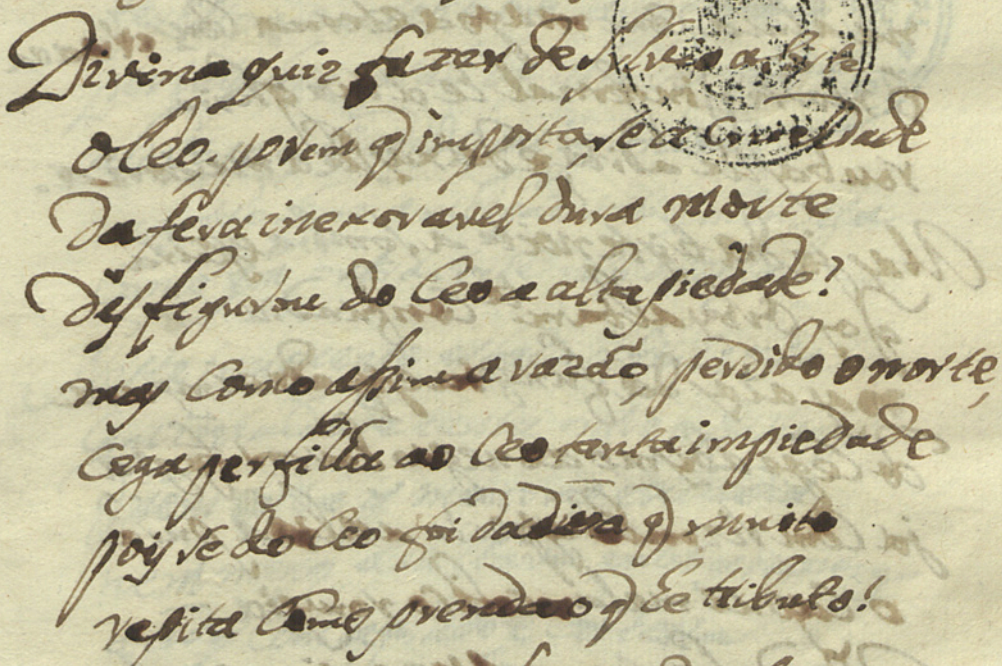 Divina quiz fazer de Sylvio a sorte
o Ceo, porem q̃ importa, se a crueldade
da fera inexoravel dura morte
desfigurou do Ceo a alta piedade?
mas como assim a razão, perdido o norte,
cega perfilha ao Ceo tanta impiedade
poys se do Ceo foi dadiva q̃ muito
repita como prenda o q̃ he tributo!